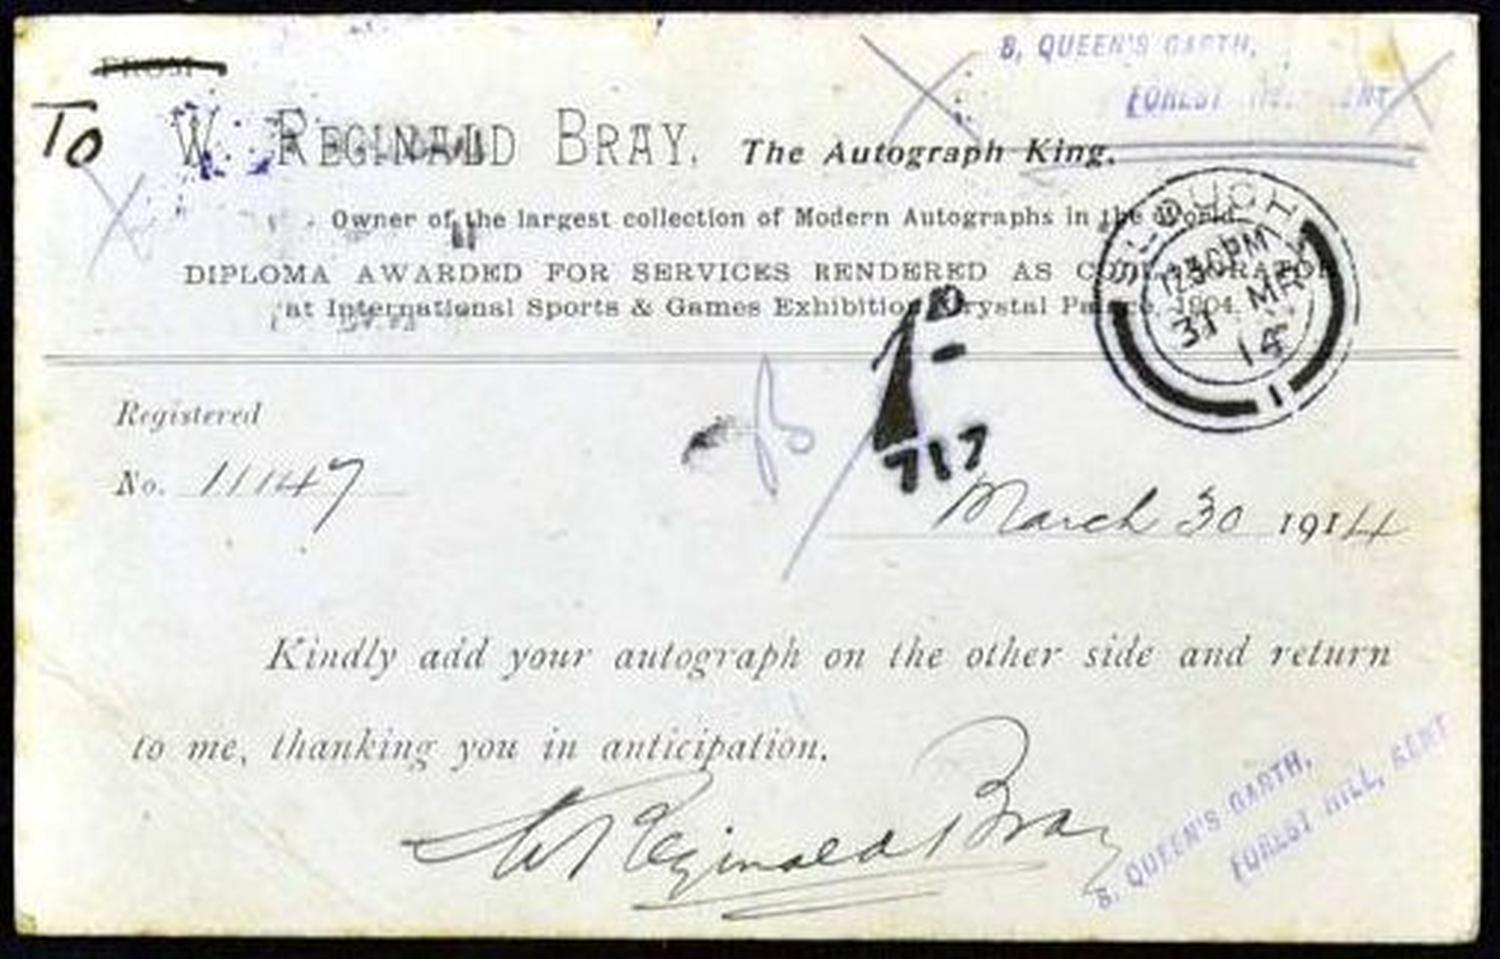 FROM
8, QUEEN'S GARTH,
FOREST HILL, KENT
To
W. REGINALD BRAY, The Autograph King.
Owner of the largest collection of Modern Autographs in the World.
DIPLOMA AWARDED FOR SERVICES RENDERED AS COLLABORATOR
at International Sports & Games Exhibition, Crystal Palace, 1904.
SLOUGH
12.30PM
31 MR
14
1
1D
717
Registered
No. 11147
March 30 1914
Kindly add your autograph on the other side and return
to me, thanking you in anticipation.
W Reginald Bray
8, QUEEN'S GARTH,
FOREST HILL, KENT